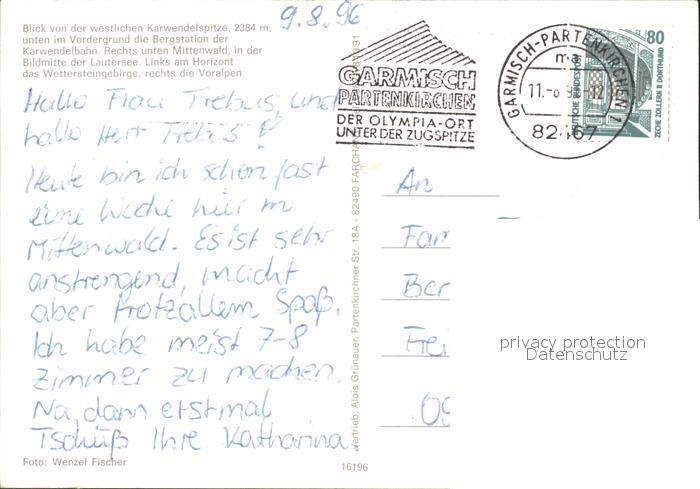 9.8.96
Blick von der westlichen Karwendelspitze, 2384 m,
unten im Vordergrund die Bergstation der
Karwendelbahn. Rechts unten Mittenwald, in der
Bildmitte der Lautersee. Links am Horizont
das Wettersteingebirge, rechts die Voralpen.
Hallo Frau Trebus, und
hallo Herr Trebus!
Heute bin ich schon fast
eine Woche hier in
Mittenwald. Es ist sehr
anstrengend, macht
aber trotzallem Spaß.
Ich habe meist 7-8
Zimmer zu machen.
Na, dann erstmal
Tschüß Ihre Katharina
Foto: Wenzel Fischer
Vertrieb: Alois Grünauer, Partenkirchner Str. 18A - 82490 FARCHA
16196
GARMISCH
PARTENKIRCHEN
DER OLYMPIA-ORT
UNTER DER ZUGSPITZE
GARMISCH-PARTENKIRCHEN 1
ma
82467
80
DEUTSCHE BUNDESPOST
ZECHE ZOLLERN II DORTMUND
An
Fam
Ber
Frei
09
privacy protection
Datenschutz